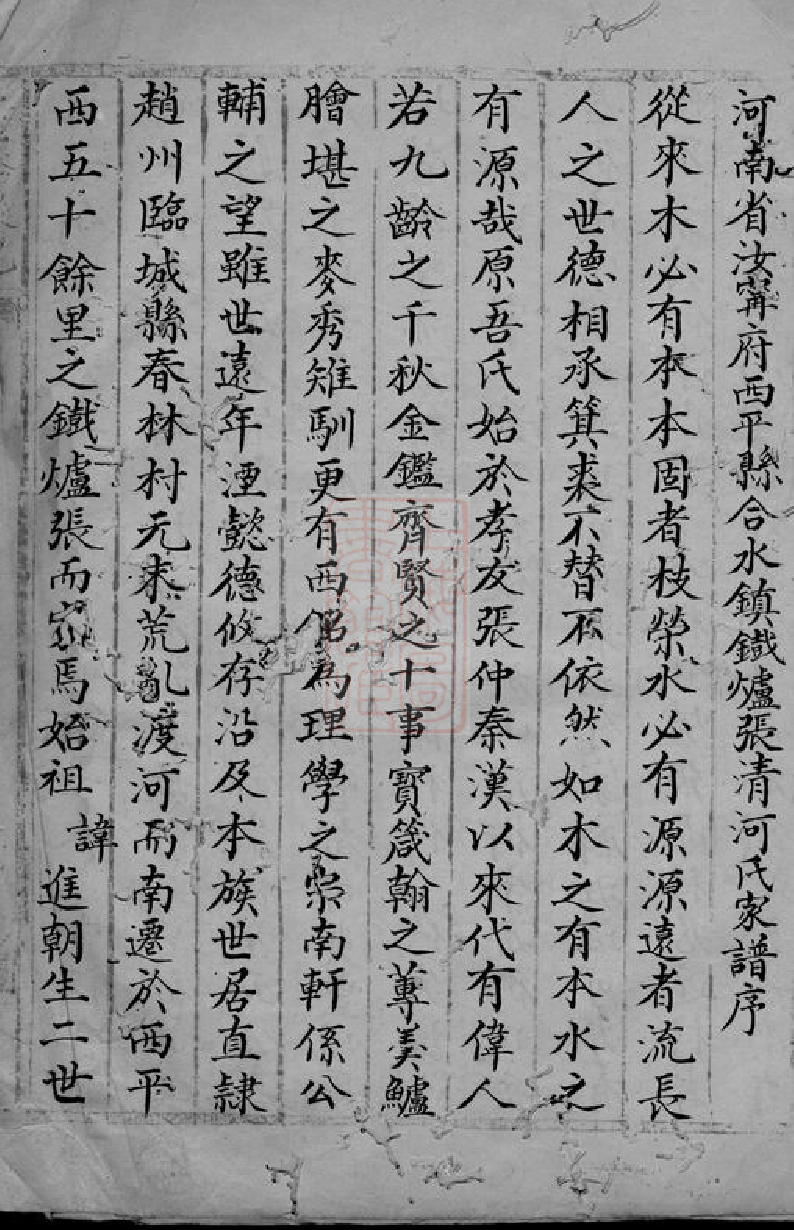 河南省汝寧府西平縣合水鎮鐵爐張清河氏家譜序
從來木必有本本固者枝榮水必有源源遠者流長
人之世德相承箕裘不替不依然如木之有本水之
有源哉原吾氏始於孝友張仲秦漢以來代有偉人
若九齡之千秋金鑑齊賢之十事寶箴翰之蓴羹鱸
膾堪之麥秀雉馴更有西銘為理學之宗南軒係公
輔之望雖世遠年湮懿德攸存沿及本族世居直隸
趙州臨城縣春林村元末荒亂渡河而南遷於西平
西五十餘里之鐵爐張而家焉始祖 諱進朝生二世